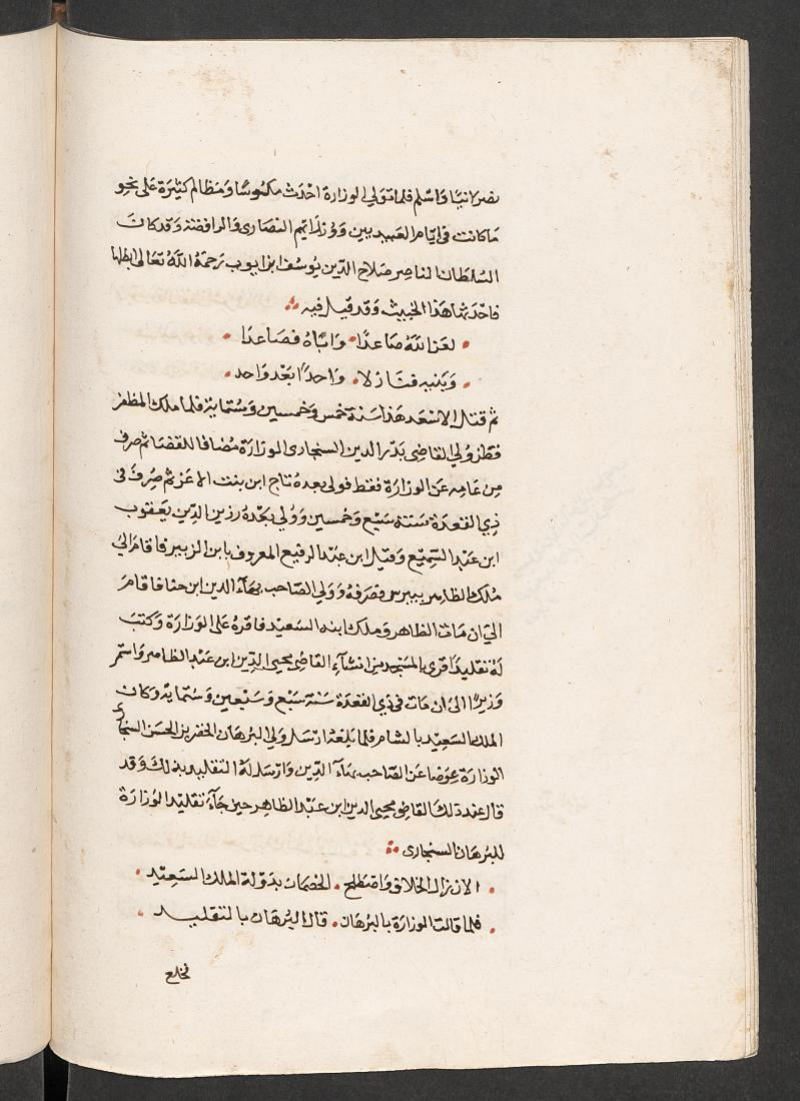 نصرانيا واسلم فلما تولي الوزارة احدث مكوسا ومظالم كثيرة على نحو
ما كانت في ايام العبيديين ووزرائهم النصارى والرافضة وقد كان
السلطان الناصر صلاح الدين يوسف ابن ايوب رحمه الله تعالى ابطلها
فاحدثها هذا الخبيث وقد قيل فيه
لعن الله صاعدا واباه فصاعدا
وبنيه فنازلا واحدا بعد واحد
ثم قتل الاسعد هذا سنة خمس وخمسين وستماية فلما ملك المظفر
قطز ولي القاضي بدر الدين السنجارى الوزارة مضافا للقضا ثم صرف
من عامه عن الوزارة فقط فولي بعده تاج ابن بنت الاعز ثم صرف في
ذي القعدة سنة سبع وخمسين وولي بعده زين الدين يعقوب
ابن عبد السميع وقيل ابن عبد الرفيع المعروف بابن الزبير فاقام الي
ملك الظاهر بيبرس فصرفه وولي الصاحب بهاء الدين ابن حنا فاقام
الي ان مات الظاهر وملك ابنه السعيد فاقره على الوزارة وكتب
له تقليدا قرى بالمسجد من انشاء القاضي محيي الدين ابن عبد الظاهر واستمر
وزيرا الى ان مات في ذي القعدة سنة سبع وسبعين وستماية وكان
الملك السعيد بالشام فلما بلغه ارسل ولي البرهان الخضر بن الحسن السنجارى
الوزارة عوضا عن الصاحب بهاء الدين وارسل له التقليد بذلك وقد
قال عند ذلك القاضي محيي الدين ابن عبد الظاهر حين جاء تقليد الوزارة
للبرهان السنجارى
الان زال الخلاق واصطلح الخصمان بدولة الملك السعيد
فلما قالت الوزارة بالبرهان قال البرهان بالتقليد
فخلع